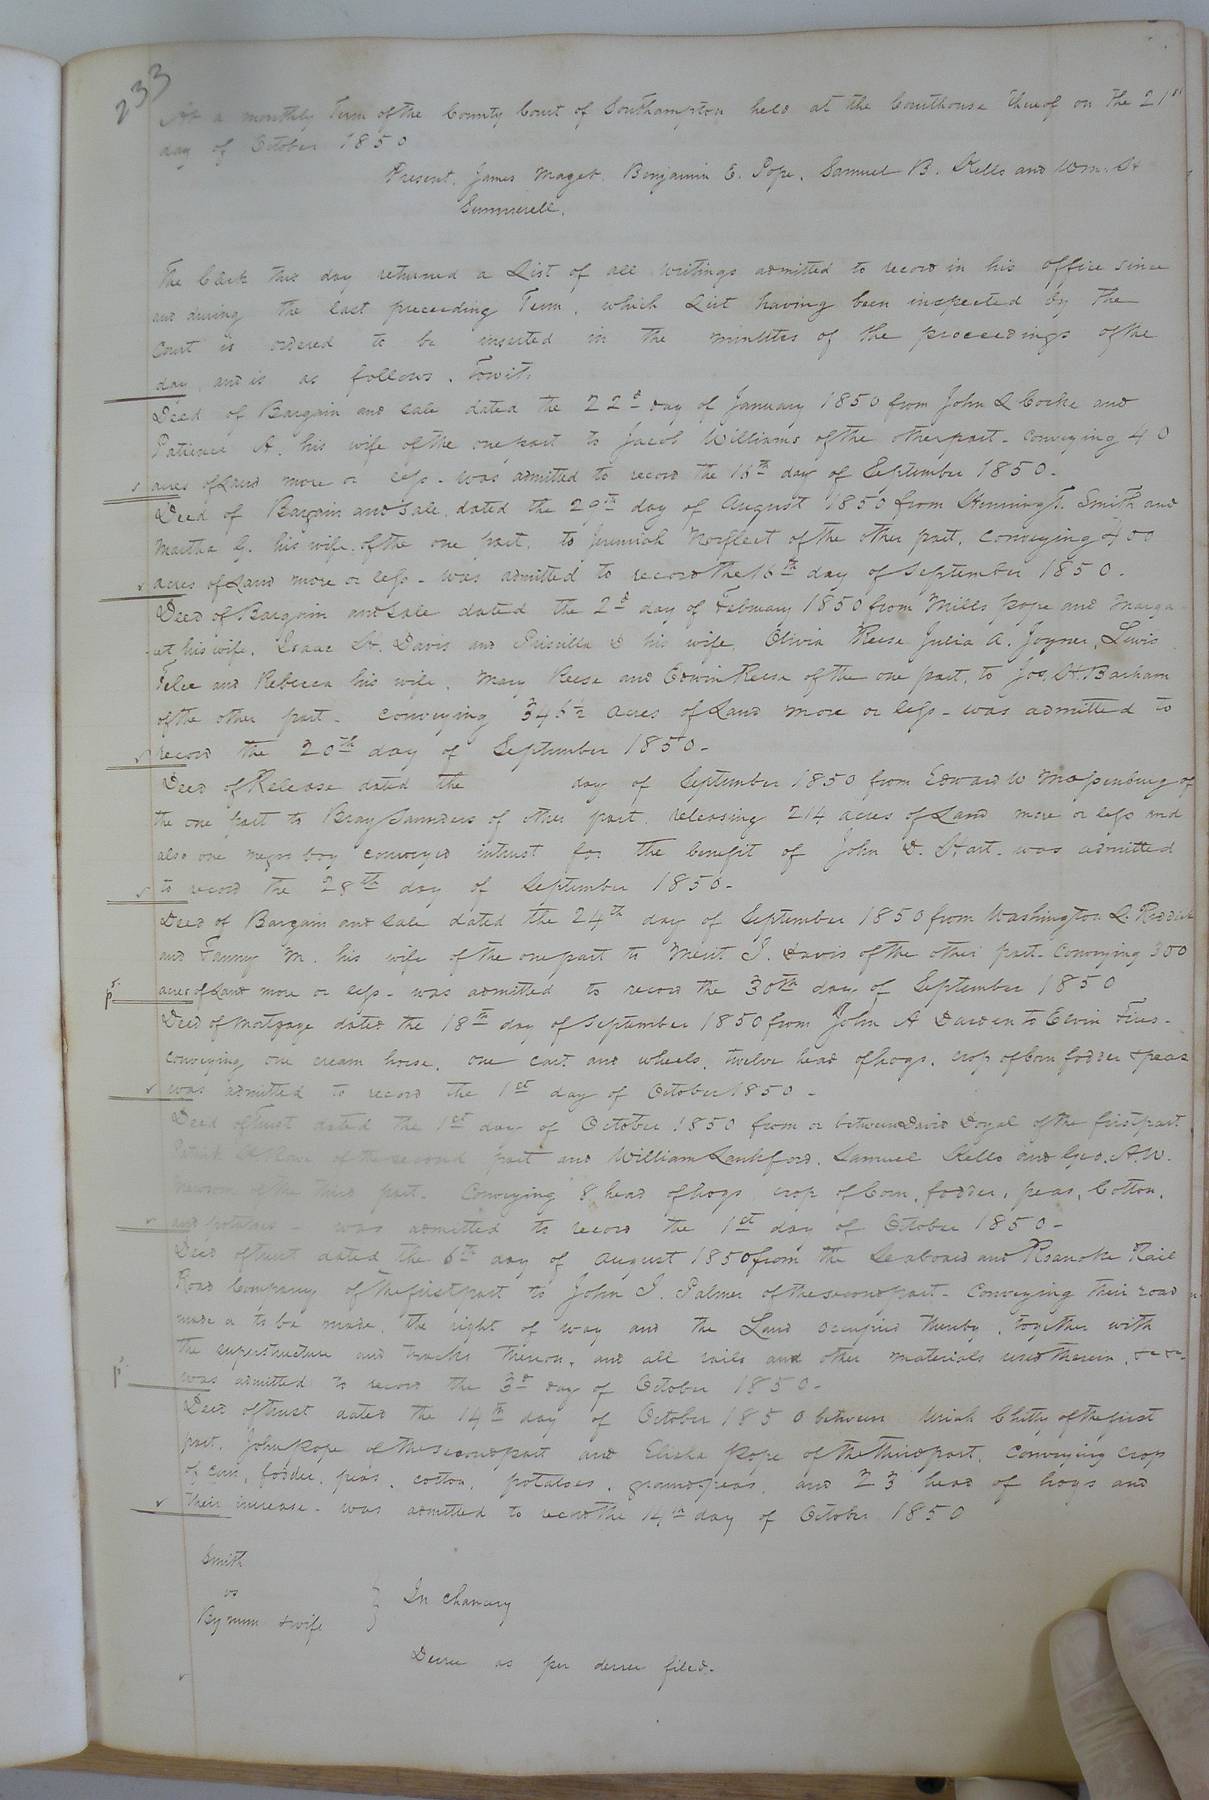 233
At a monthly Term of the County Court of Southampton held at the Courthouse thereof on the 21st
day of October 1850
Present. James Maget. Benjamin E. Pope. Samuel B. Kello and Wm. H
Summerell.
The Clerk this day returned a List of all writings admitted to record in his office since
and during the last preceeding Term, which List having been inspected by the
Court is ordered to be inserted in the minutes of the proceedings of the
day and is as follows. Towit.
Deed of Bargain and sale dated the 22d day of January 1850 from John L Cocke and
Patience A. his wife of the one part to Jacob Williams of the other part - conveying 40
acres of Land more or less - was admitted to record the 16th day of September 1850 -
Deed of Bargain and sale dated the 29th day of August 1850 from Henning T. Smith and
Martha G. his wife, of the one part, to Jeremiah Norfleet of the other part, conveying 400
acres of Land more or less - was admitted to record the 16th day of September 1850 -
Deed of Bargain and sale dated the 2d day of February 1850 from Mills Pope and Marga-
-et his wife, Isaac H. Davis and Priscilla D his wife, Olivia Reese Julia A. Joyner, Lewis
and Rebecca his wife, Mary Reese and Edwin Reese of the one part, to Jos. H. Barham
of the other part - conveying 346½ acres of Land more or less - was admitted to
record the 20th day of September 1850 -
Deed of Release dated the day of September 1850 from Edward W Massenburg of
the one part to Bray Saunders of other part, releasing 214 acres of Land more or less and
also one negro boy conveyed intrust for the benefit of John D. Hart - was admitted
to record the 28th day of September 1850 -
Deed of Bargain and sale dated the 24th day of September 1850 from Washington L. Riddick
and Fanny M. his wife of the one part to Merit I. Davis of the other part - Conveying 300
acres of Land more or less - was admitted to record the 30th day of September 1850
Deed of Mortgage dated the 18th day of September 1850 from John A Darden to Elvin
conveying one cream horse, one cart and wheels, twelve head of hogs, crop of Corn fodder & peas
was admitted to record the 1st day of October 1850 -
Deed of trust dated the 1st day of October 1850 from or between David Doyal of the first part
of the second part and William Lankford, Samuel Kello and Geo. A. W.
Newsom of the third part. Conveying 8 head of hogs, crop of Corn, fodder, peas, Cotton,
and potatoes - was admitted to record the 1st day of October 1850 -
Deed of trust dated the 6th day of August 1850 from the Seaboard and Roanoke Rail
Road Company of the first part to John I. Palmer of the second part - Conveying their road
made or to be made, the right of way and the Land occupied thereby, together with
the superstructure and tracks thereon, and all rails and other materials used therein, &c &c -
was admitted to record the 3d day of October 1850 -
Deed of trust dated the 14th day of October 1850 between Uriah Chitty of the first
part, John Pope of the second part and Elisha Pope of the third part, conveying crop
of corn, fodder, peas, cotton, potatoes, groundpeas, and 23 head of hogs and
their increase - was admitted to record the 14th day of October 1850
Smith
vs
Bynum & wife
In Chancery
Decree as per decree filed -